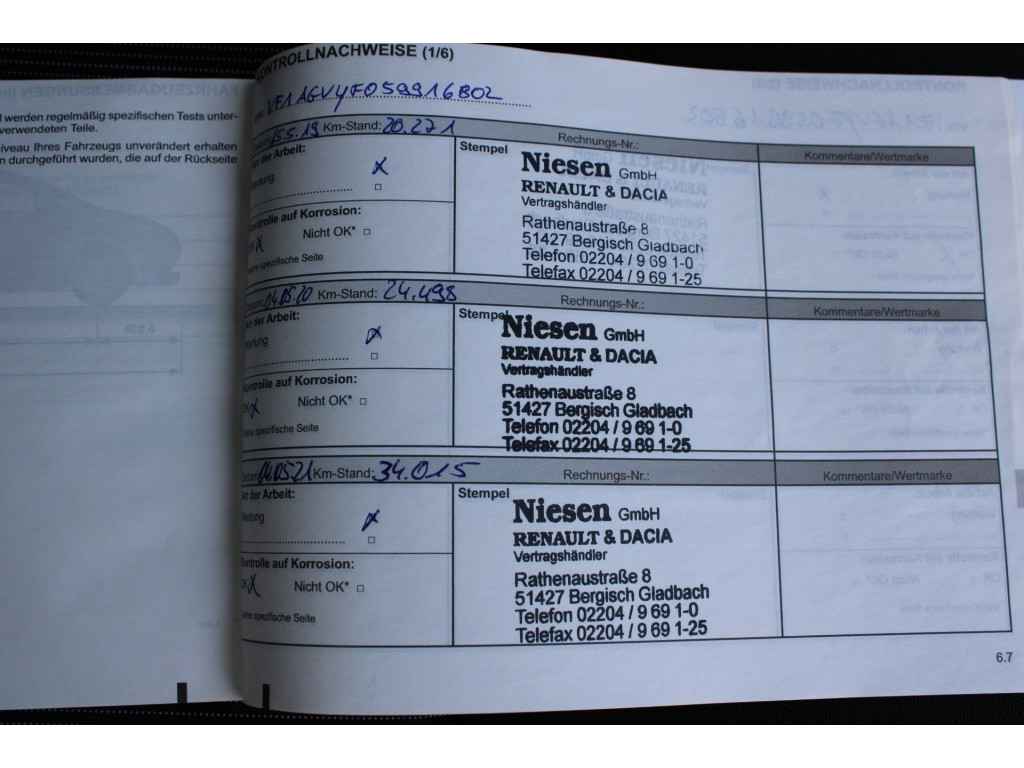 l werden regelmäßig spezifischen Tests unter-
verwendeten Teile.
iveau Ihres Fahrzeugs unverändert erhalten
n durchgeführt wurden, die auf der Rückseite
KONTROLLNACHWEISE (1/6)
VF1AGVYF059916802
15.5.19 Km-Stand: 20.271 Rechnungs-Nr.: Kommentare/Wertmarke
der Arbeit:
artung
X
Kontrolle auf Korrosion:
OK X Nicht OK*
spezifische Seite
Stempel
Niesen GmbH
RENAULT & DACIA
Vertragshändler
Rathenaustraße 8
51427 Bergisch Gladbach
Telefon 02204 / 9 69 1-0
Telefax 02204 / 9 69 1-25
04.05.20 Km-Stand: 24.498 Rechnungs-Nr.: Kommentare/Wertmarke
der Arbeit:
artung
X
Kontrolle auf Korrosion:
OK X Nicht OK*
spezifische Seite
Stempel
Niesen GmbH
RENAULT & DACIA
Vertragshändler
Rathenaustraße 8
51427 Bergisch Gladbach
Telefon 02204 / 9 69 1-0
Telefax 02204 / 9 69 1-25
04.05.21 Km-Stand: 34.015 Rechnungs-Nr.: Kommentare/Wertmarke
der Arbeit:
artung
X
Kontrolle auf Korrosion:
OK X Nicht OK*
spezifische Seite
Stempel
Niesen GmbH
RENAULT & DACIA
Vertragshändler
Rathenaustraße 8
51427 Bergisch Gladbach
Telefon 02204 / 9 69 1-0
Telefax 02204 / 9 69 1-25
6.7